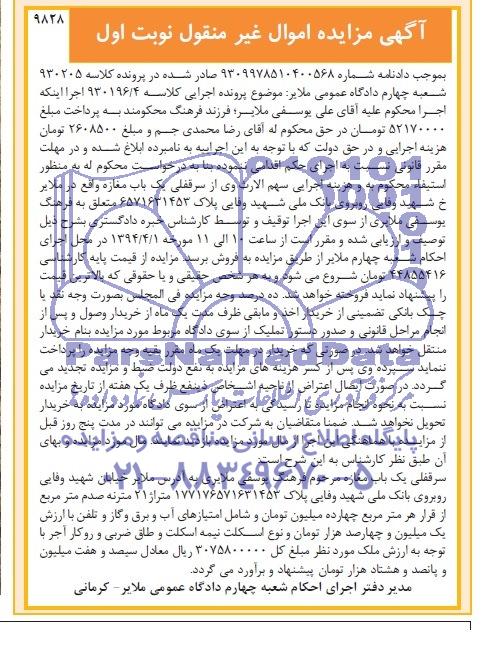 ۹۸۲۸
آگهی مزایده اموال غیر منقول نوبت اول
بموجب دادنامه شماره ۹۳۰۹۹۷۸۵۱۰۴۰۰۵۶۸ صادر شده در پرونده کلاسه ۹۳۰۲۰۵
شعبه چهارم دادگاه عمومی ملایر: موضوع پرونده اجرایی کلاسه ۹۳۰۱۹۶/۴ اجرا اینکه
اجرا محکوم علیه آقای علی یوسفی ملایر؛ فرزند فرهنگ محکومند به پرداخت مبلغ
۵۲۱۷۰۰۰۰ تومان در حق محکوم له آقای رضا محمدی جم و مبلغ ۲۶۰۸۵۰۰ تومان
هزینه اجرایی و در حق دولت که با توجه به این اجراییه به نامبرده ابلاغ شده و در مهلت
مقرر قانونی نسبت به اجرای حکم اقدامی ننموده بنا به درخواست محکوم له به منظور
استیفاء محکوم به و هزینه اجرایی سهم الارث وی از سرقفلی یک باب مغازه واقع در ملایر
خ شهید وفایی روبروی بانک ملی شهید وفایی پلاک ۶۵۷۱۶۳۱۴۵۳ متعلق به فرهنگ
یوسفی ملایری از سوی این اجرا توقیف و توسط کارشناس خبره دادگستری بشرح ذیل
توصیف و ارزیابی شده و مقرر است از ساعت ۱۰ الی ۱۱ مورخه ۱۳۹۴/۴/۱ در محل اجرای
احکام شعبه چهارم ملایر از طریق مزایده به فروش برسد. مزایده از قیمت پایه کارشناسی
۴۴۸۵۵۴۱۶ تومان شروع می شود و به هر شخص حقیقی و یا حقوقی که بالاترین قیمت
را پیشنهاد نماید فروخته خواهد شد. ده درصد وجه مزایده فی المجلس بصورت وجه نقد یا
چک بانکی تضمینی از خریدار اخذ و مابقی ظرف مدت یک ماه از خریدار وصول و پس از
انجام مراحل قانونی و صدور دستور تملیک از سوی دادگاه مربوط مورد مزایده بنام خریدار
منتقل خواهد شد. در صورتی که خریدار در مهلت یک ماه مقرر بقیه وجه مزایده را پرداخت
ننماید سپرده وی پس از کسر هزینه های مزایده به نفع دولت ضبط و مزایده تجدید می
گردد. در صورت ایصال اعتراض از ناحیه اشخاص ذینفع ظرف یک هفته از تاریخ مزایده
نسبت به نحوه انجام مزایده تا رسیدگی به اعتراض از سوی دادگاه مورد مزایده به خریدار
تحویل نخواهد شد. ضمنا متقاضیان به شرکت در مزایده می توانند در مدت پنج روز قبل
از مزایده با هماهنگی این اجرا از مال مورد مزایده بازدید نمایند. مال مورد مزایده و بهای
آن طبق نظر کارشناس به این شرح است:
سرقفلی یک باب مغازه مرحوم فرهنگ یوسفی ملایری به آدرس ملایر خیابان شهید وفایی
روبروی بانک ملی شهید وفایی پلاک ۱۷۷۱۷۶۵۷۱۶۳۱۴۵۳ متراژ ۲۱ مترنه صدم متر مربع
از قرار هر متر مربع چهارده میلیون تومان و شامل امتیازهای آب و برق وگاز و تلفن با ارزش
یک میلیون و چهارصد هزار تومان و نوع اسکلت نیمه اسکلت و طاق ضربی و روکار آجر با
توجه به ارزش ملک مورد نظر مبلغ کل ۳۰۷۵۸۰۰۰۰۰ ریال معادل سیصد و هفت میلیون
و پانصد و هشتاد هزار تومان پیشنهاد و برآورد می گردد.
مدیر دفتر اجرای احکام شعبه چهارم دادگاه عمومی ملایر- کرمانی
ParsNamadData
پایگاه اطلاع رسانی مناقصه و مزایده
۰۲۱-۸۸۳۴۹۶۷۰-۵